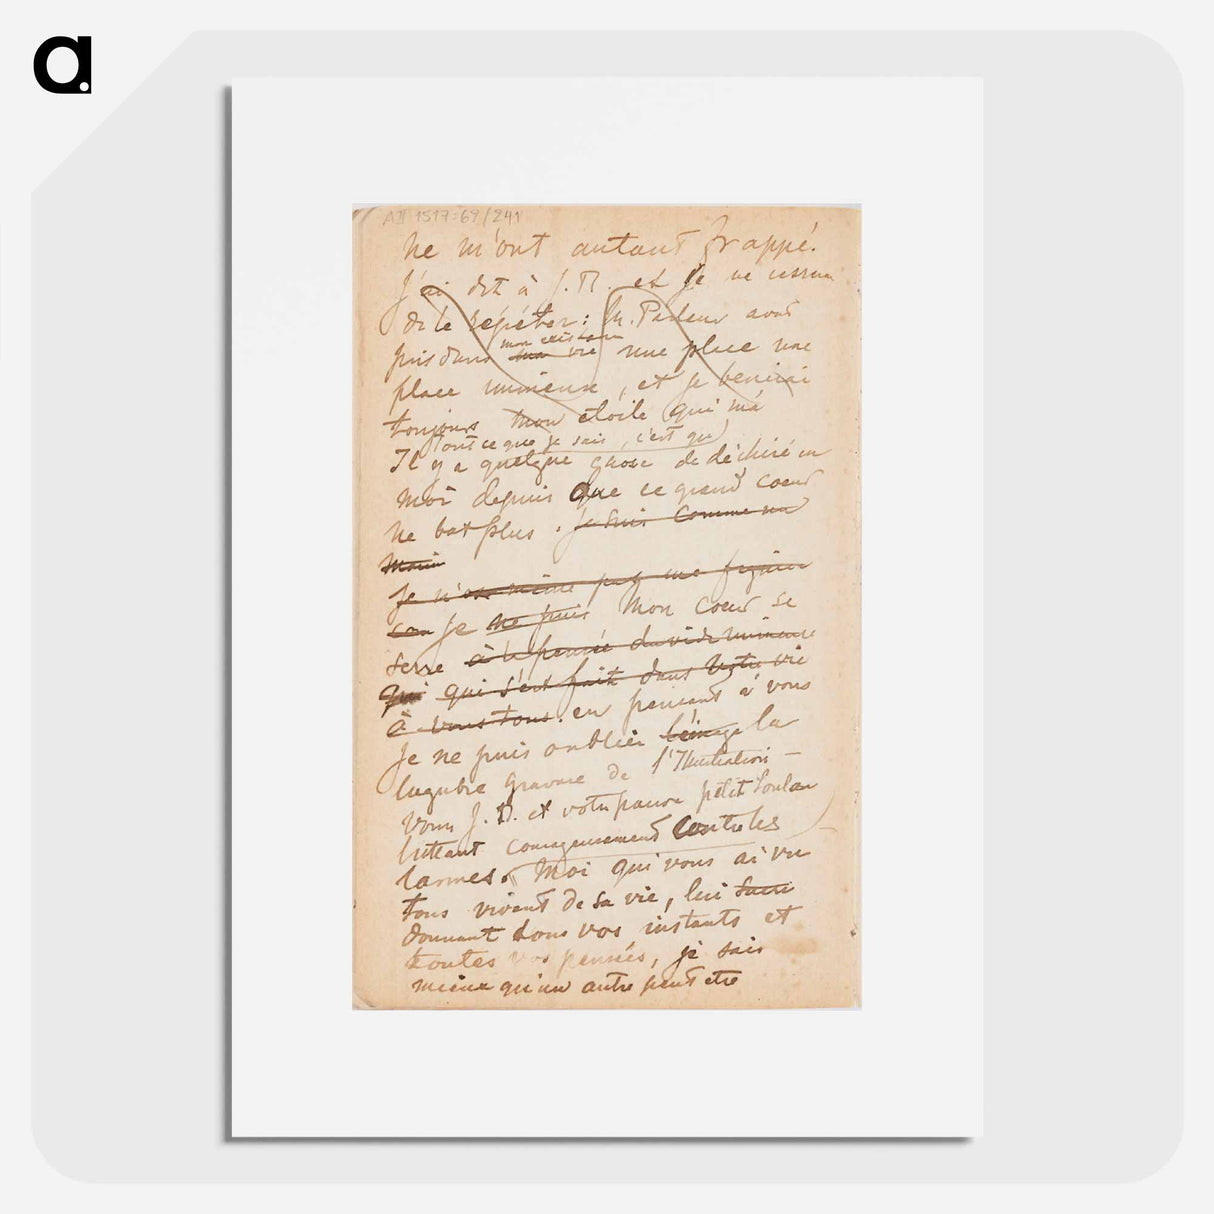 a.
AII 1517:69/241
ne m'ont autant frappé.
J'ai dit à J. B. et je ne
de le répéter: M. Pasteur avait
pris dans mon existence ma vie une place une
place immense, et je benirai
toujours mon étoile qui m'a
Tout ce que je sais, c'est que
Il y a quelque chose de déchiré en
moi depuis que ce grand coeur
ne bat plus. je suis comme un
marin
je n'ose même pas me figurer
Je ne puis Mon coeur se
serre à la pensée du vide immense
qui qui s'est fait dans votre vie
à vous tous. en pensant à vous
Je ne puis oublier l'image la
lugubre gravure de l'Illustration —
Vous J. B. et votre pauvre petit
luttant courageusement contre les
larmes. Moi qui vous ai vu
tous vivant de sa vie, lui
donnant tous vos instants et
toutes vos pensées, je sais
mieux qu'un autre peut être